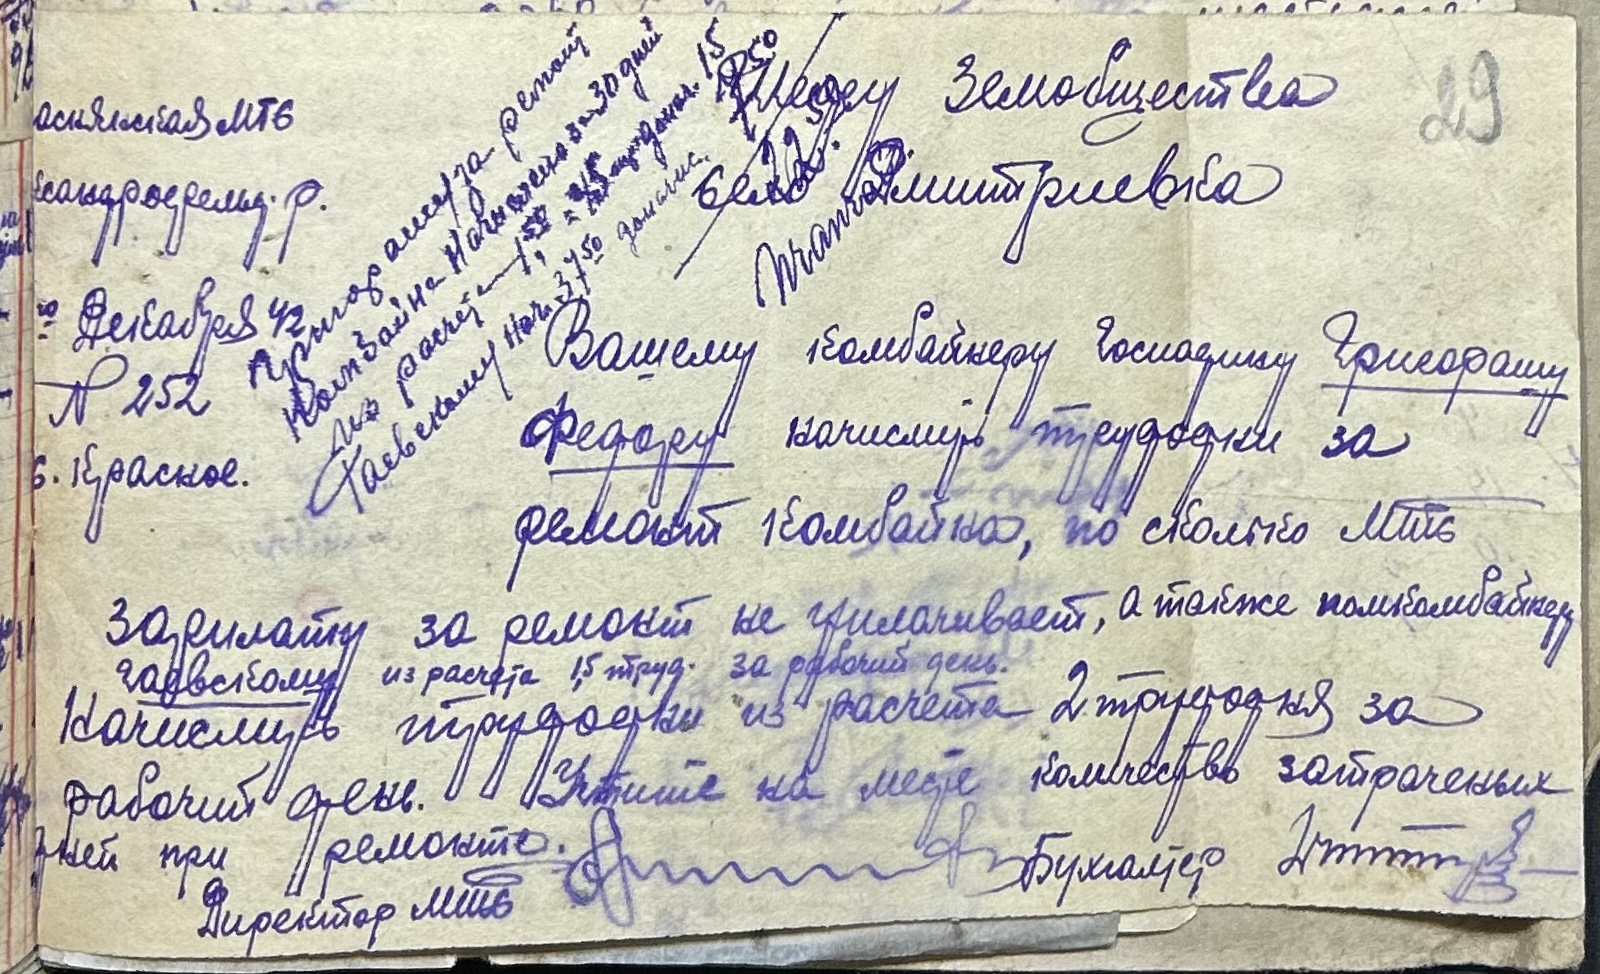 29
аснянская МТС
ександродельф. р.
го Декабря 42
N 252
с. Красное.
Григорашу за ремонт
комбайна Начислено за 30 дней
из расчета 1,50 = 45
Гаевскому нач. 37 50
Земобщества
села Дмитриевка
Вашему комбайнеру Господину Григорашу
Федору начислить трудодни за
ремонт комбайна, по сколько МТС
зарплату за ремонт не уплачивает, а также помкомбайнеру
Гаевскому из расчета 1,5 труд. за рабочий день.
Начислить трудодни из расчета 2 трудодня за
рабочий день. Учтите на месте количество затраченых
дней при ремонте.
Директор МТС
Бухгалтер